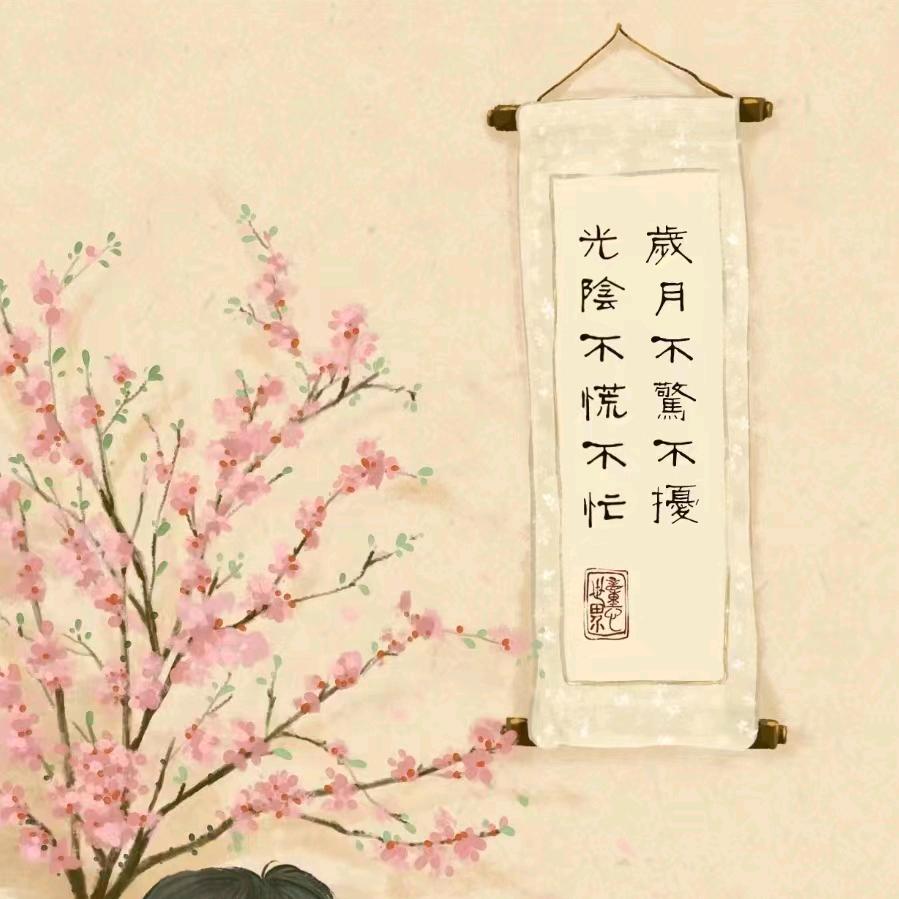 歲月不驚不擾
光陰不慌不忙
童心世界